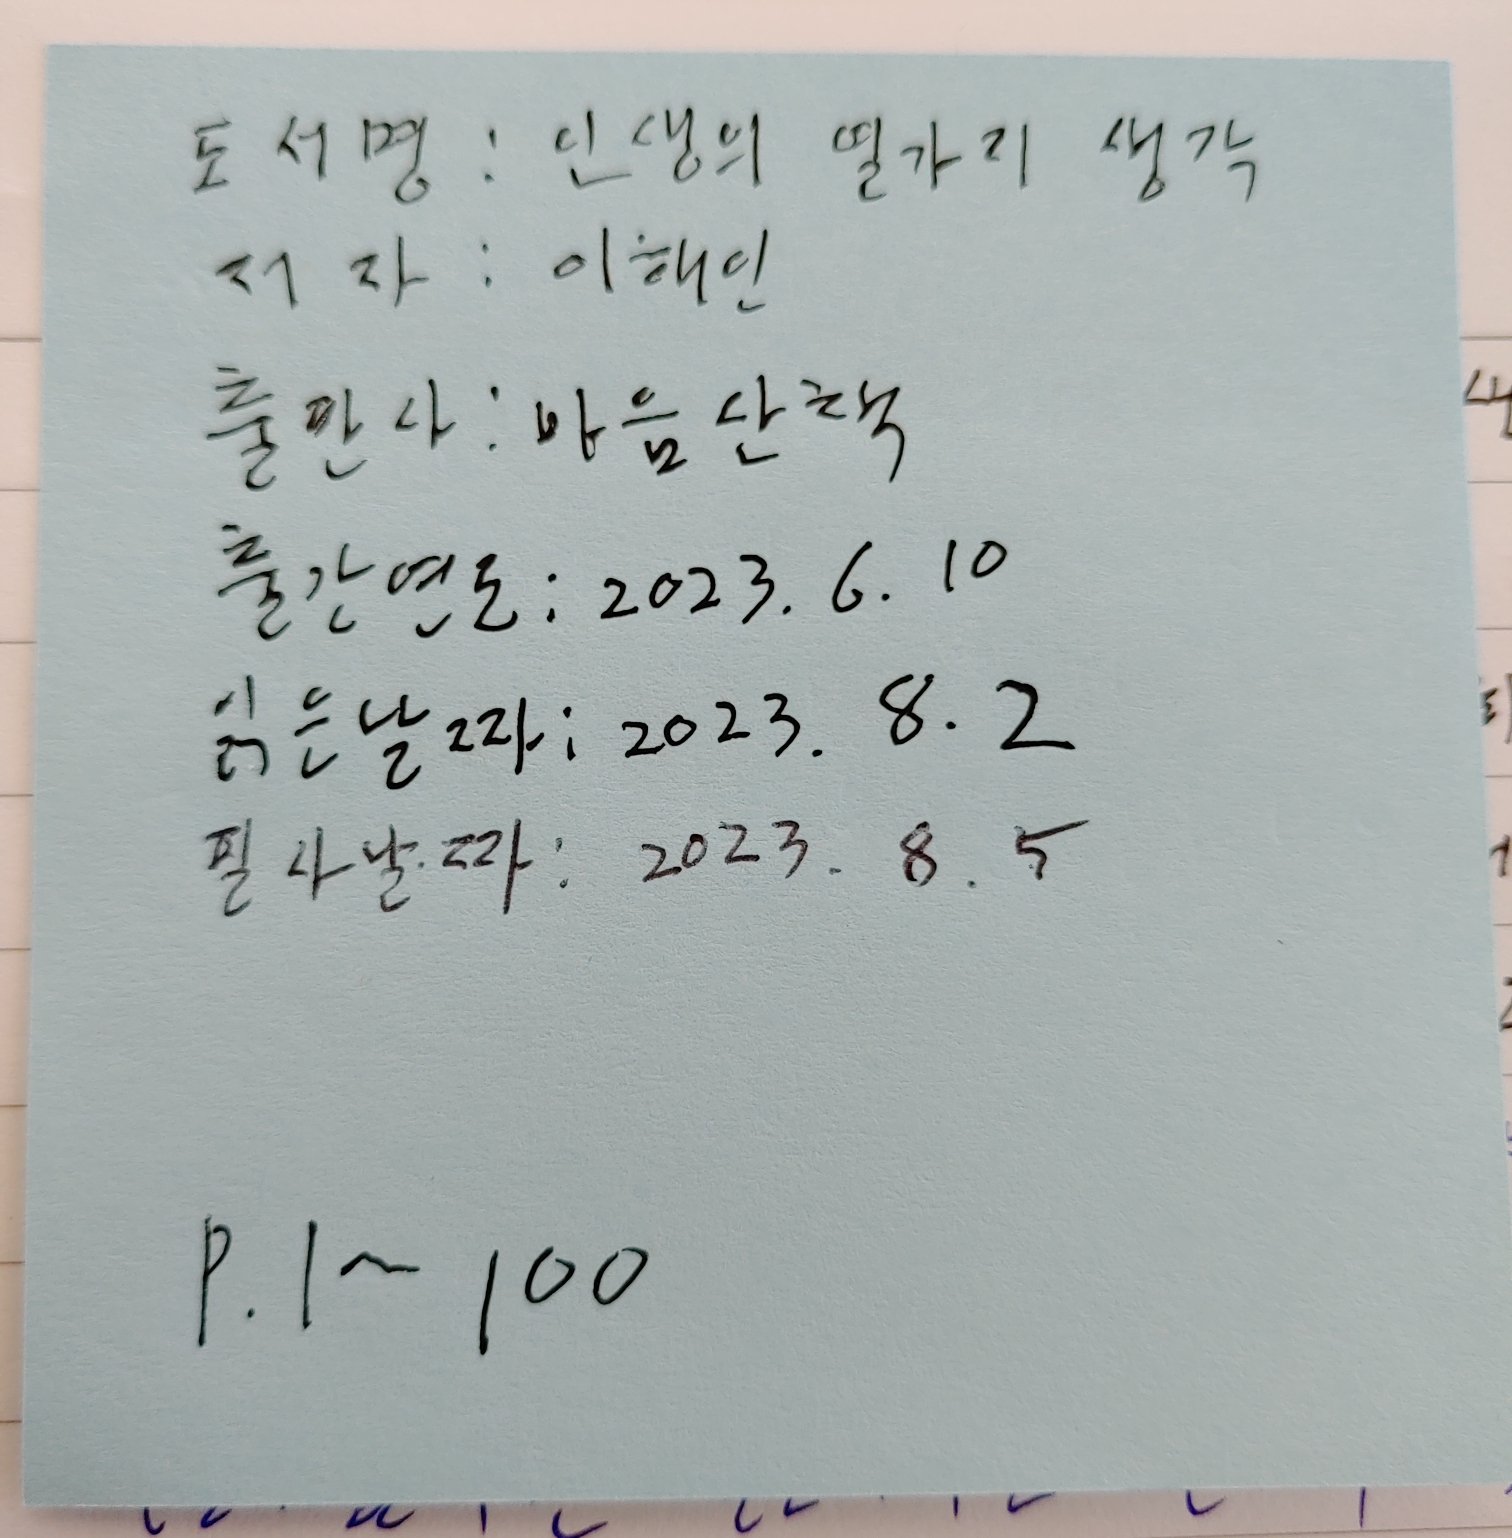 도서명 : 인생의 열가지 생각
저자 : 이해인
출판사 : 마음산책
출간연도 : 2023. 6. 10
읽은날짜 : 2023. 8. 2
필사날짜 : 2023. 8. 5
P. 1~100